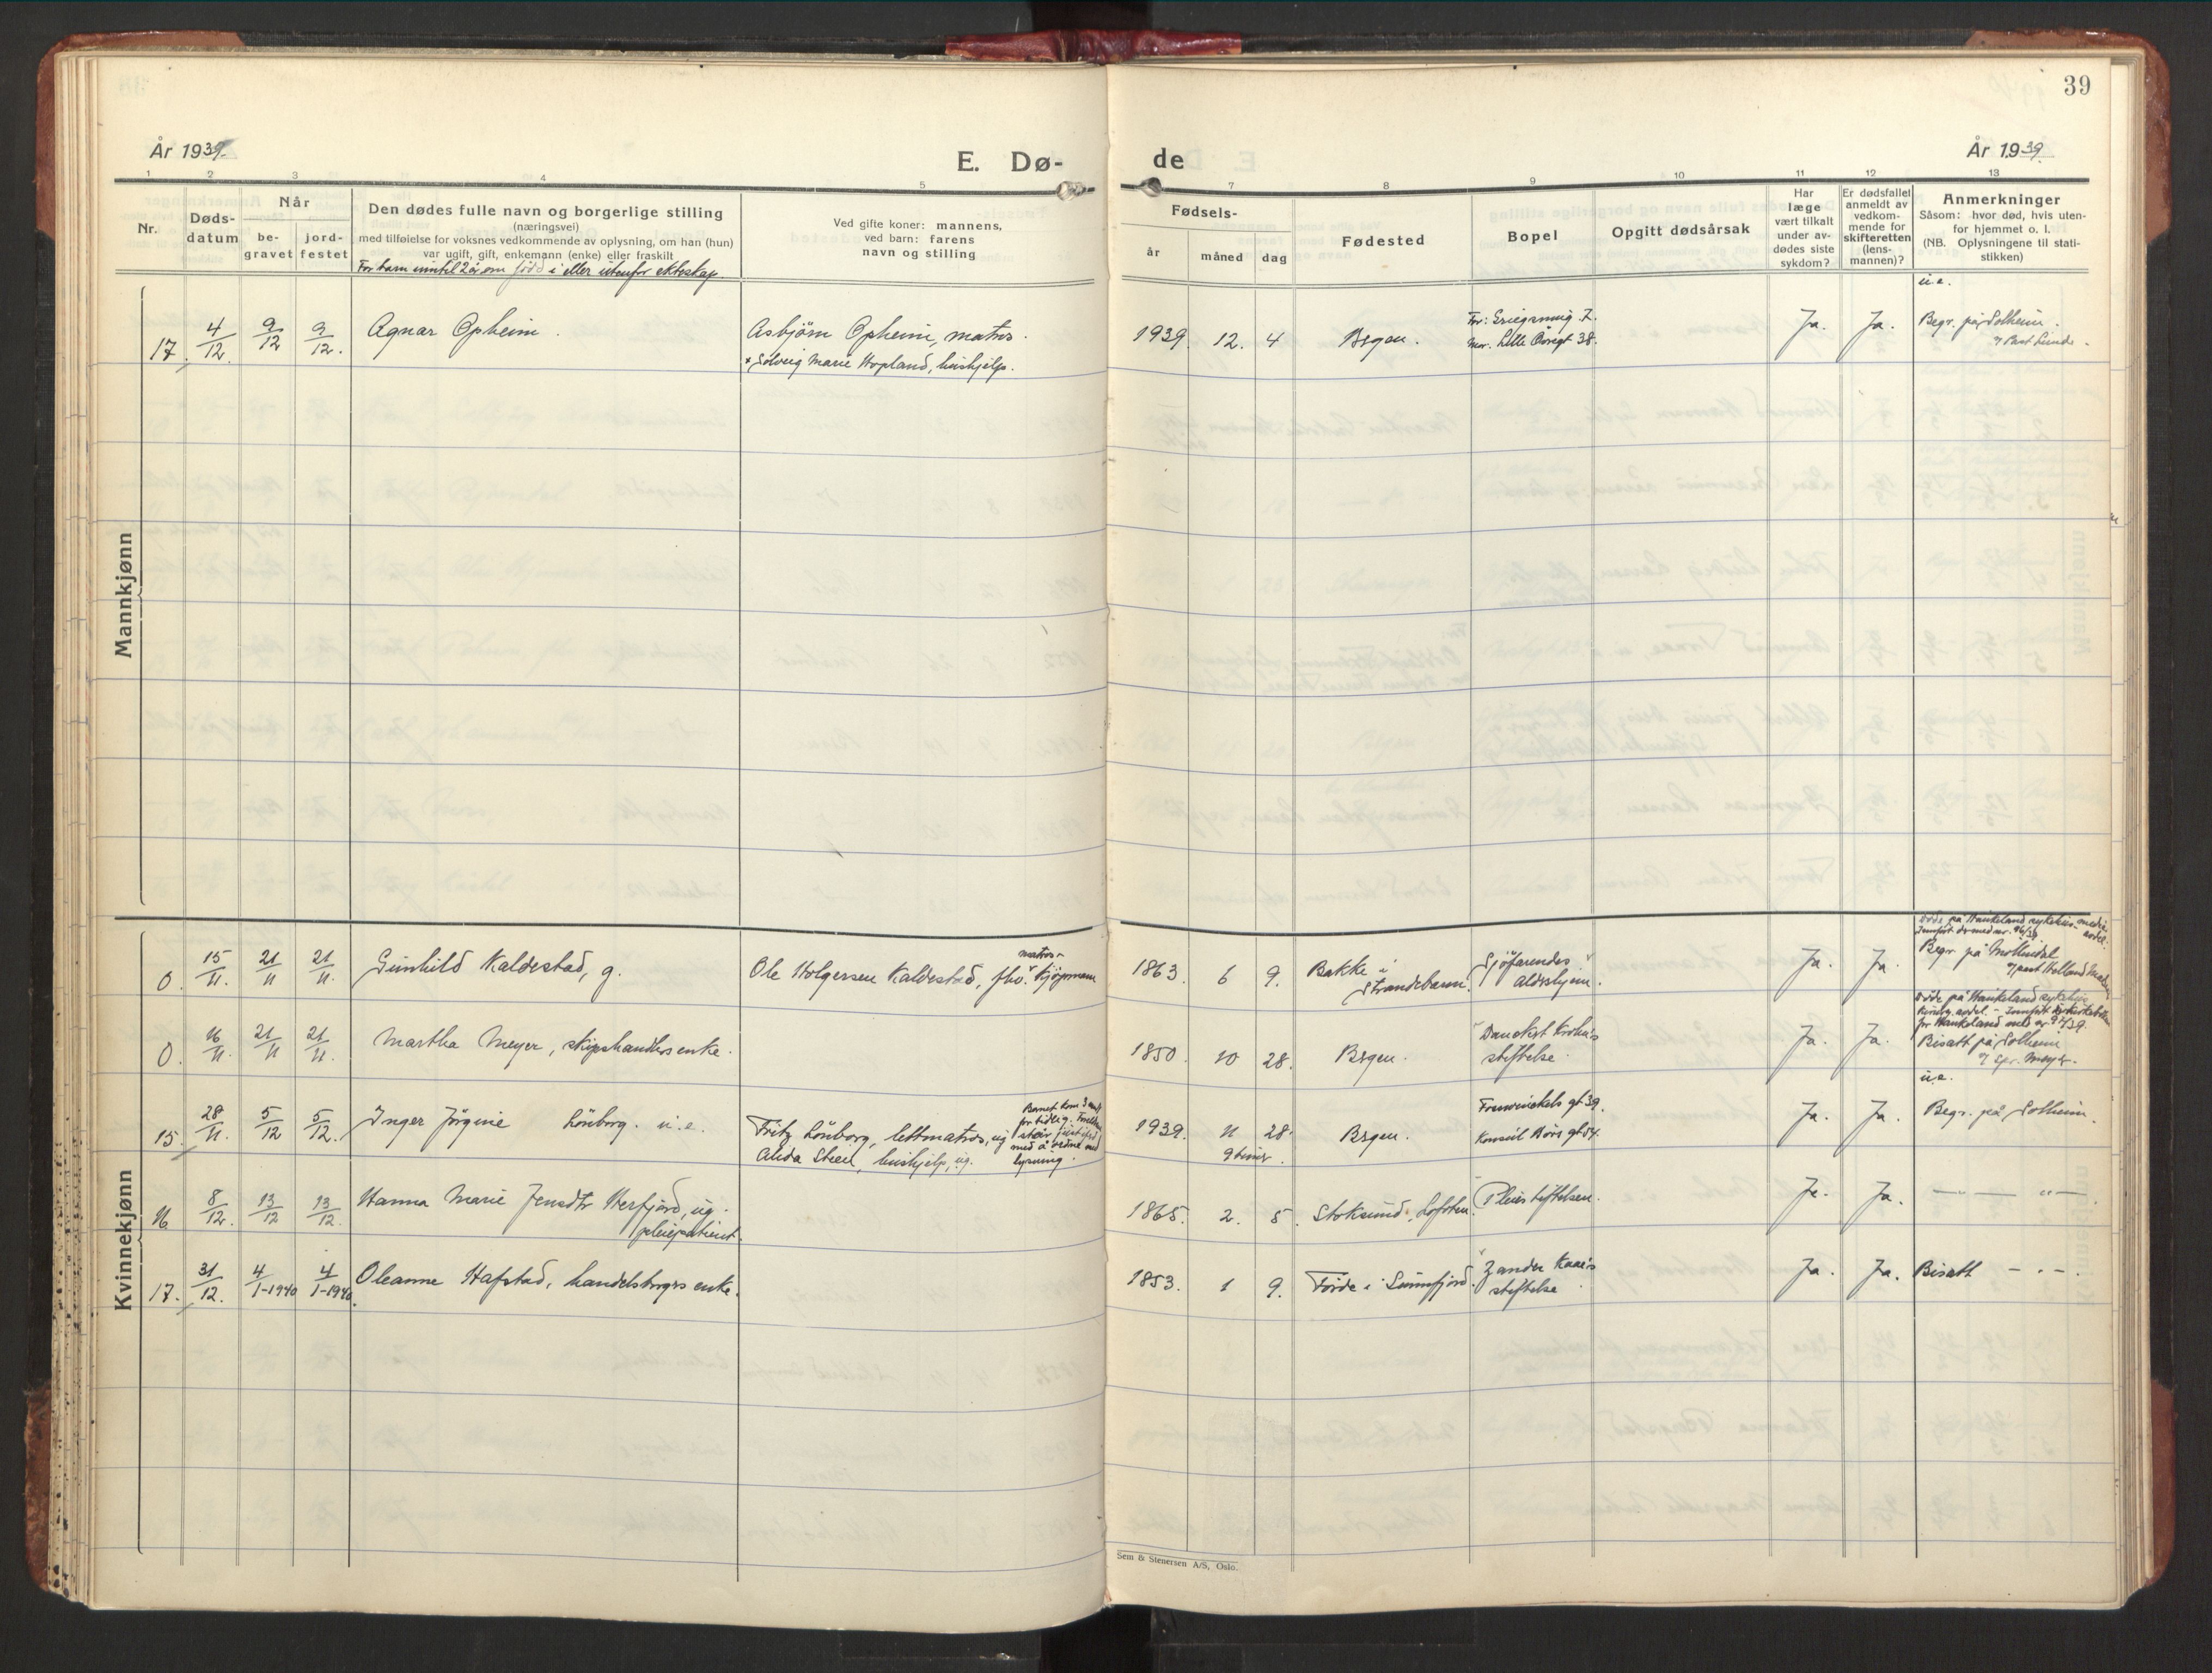 39
År 1939.
E. Dø-
de
År 1939.
1 2 3 4 5
7 8 9 10 11 12 13
Nr.
Døds-
datum
Når
be-
gravet
jord-
festet
Den dødes fulle navn og borgerlige stilling
(næringsvei)
med tilføielse for voksnes vedkommende av oplysning, om han (hun)
var ugift, gift, enkemann (enke) eller fraskilt
For barn inntil 2 år om född i eller utenfor ekteskap
Ved gifte koner: mannens,
ved barn: farens
navn og stilling
Fødsels-
år
måned
dag
Fødested
Bopel
Opgitt dødsårsak
Har
læge
vært tilkalt
under av-
dødes siste
sykdom?
Er dødsfallet
anmeldt av
vedkom-
mende for
skifteretten
(lens-
mannen)?
Anmerkninger
Såsom: hvor død, hvis uten-
for hjemmet o. l.
(NB. Oplysningene til stati-
stikken)
Mannkjønn
17. 4/12. 9/12 9/12. Agnar Opheim.
Asbjörn Opheim, matros.
* Solveig Marie Hopland, hushjelp.
1939. 12. 4 Bergen.
Mor. Lille Övregt 38.
Ja. Ja.
u.e.
Begr. på Solheim.
Kvinnekjønn
0. 15/11. 21/11 21/11. Gunhild Kaldestad, g.
matros
Ole Holgersen Kaldestad, fhv. kjöpmann
1863. 6 9. Bakke i
Strandebarm.
Sjöfarendes
Aldershjem.
Ja. Ja.
Döde på Haukeland sykehus
Begr på Möllendal
0. 16/11. 21/11 21/11. Martha Meyer, skipshandlers enke.
1850. 10 28. Bergen.
Danckert Krohn's
stiftelse.
Ja. Ja.
Döde på Haukeland sykehus
for Haukeland med nr. 92/39.
Bisatt på Solheim
v/ spr. Meyer.
15. 28/11. 5/12 5/12. Inger Jörgine Lönborg. u.e.
Fritz Lönborg, lettmatros, ug
Alida Steen, hushjelp, ug.
Barnet kom 3 mnd
for tidlig.
lysning.
1939. 11 28. Bergen.
9 timer.
Konsul Börs gt 54.
Ja. Ja.
u.e.
Begr. på Solheim.
16. 8/12. 13/12 13/12. Hanna Marie Jensdtr Herfjord, ug.
pleiepatient.
1865. 2. 5. Stoksund, Lofoten.
Pleiestiftelsen.
Ja. Ja.
— " —
17. 31/12. 4/1-1940 4/1-1940. Oleanne Hafstad, handelsborgers enke.
1853. 1 9. Förde i Sunnfjord.
Zander Kaae's
stiftelse.
Ja. Ja. Bisatt — " —.
Sem & Stenersen A/S, Oslo.